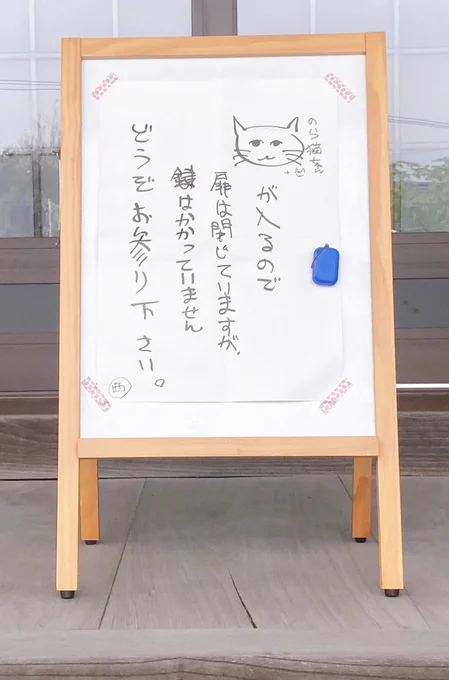 のら猫ちゃん
が入るので
扉は閉じていますが、
鍵はかかっていません
どうぞお参り下さい。
西